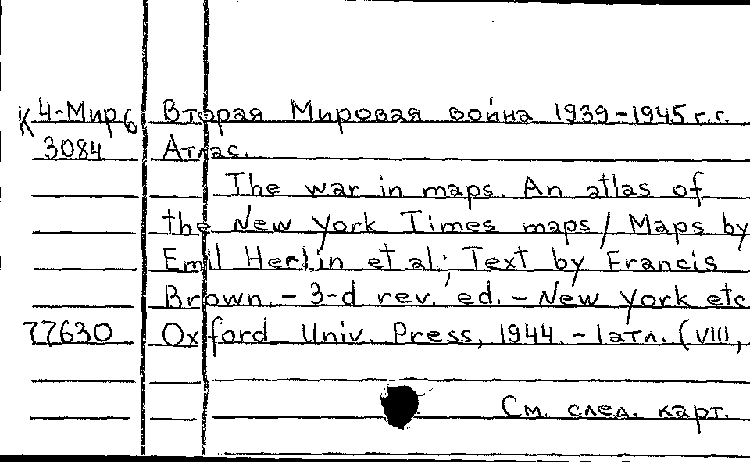 К 4-Мир6 Вторая Мировая война 1939-1945 г.г.
3084 Атлас.
The war in maps. An atlas of
the New York Times maps / Maps by
Emil Herlin et al.; Text by Francis
Brown. - 3-d rev. ed. - New York etc
77630 Oxford Univ. Press, 1944. - 1 атл. (VIII,
См. след. карт.